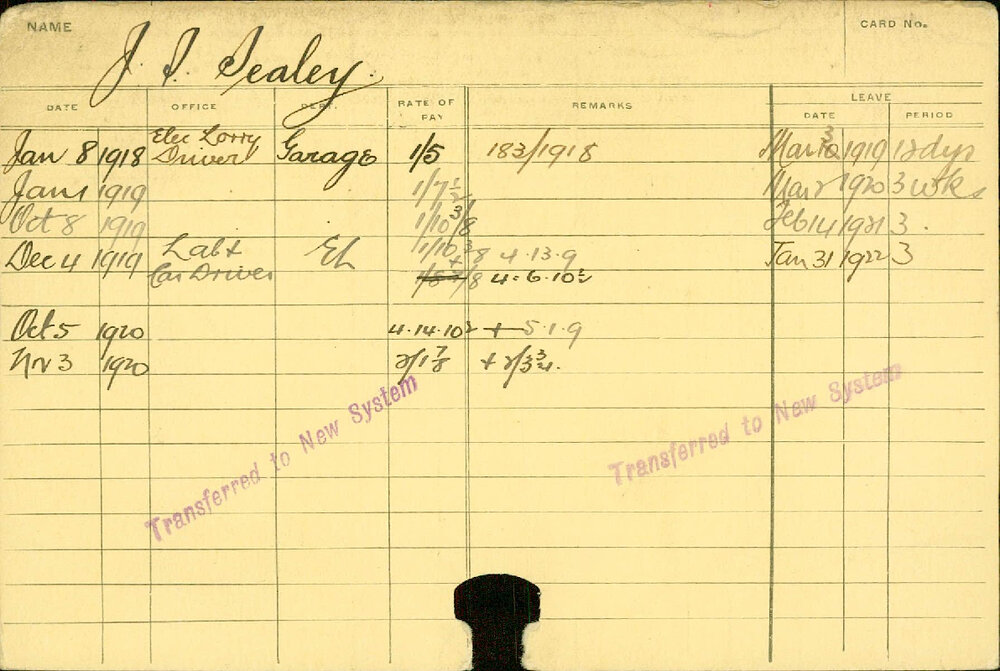 NAME
CARD No.
J. J. Sealey.
DATE OFFICE DEPT. RATE OF PAY REMARKS LEAVE
DATE PERIOD
Jan 8 1918 Elec Lorry Driver Garage 1/5 183/1918 Mar 1919 12 dys
Jan 1 1919 1/7½ Mar 2 1920 3 wks
Oct 8 1919 1/10 3/8 Feb 14 1921 3.
Dec 4 1919 Lab & Car Driver El 1/10 3/8 4.13.9 Jan 31 1922 3
4.6.10½
Oct 5 1920 4.14.10½ + 5.1.9
Nov 3 1920 2/1 7/8 + 2/3¾.
Transferred to New System
Transferred to New System